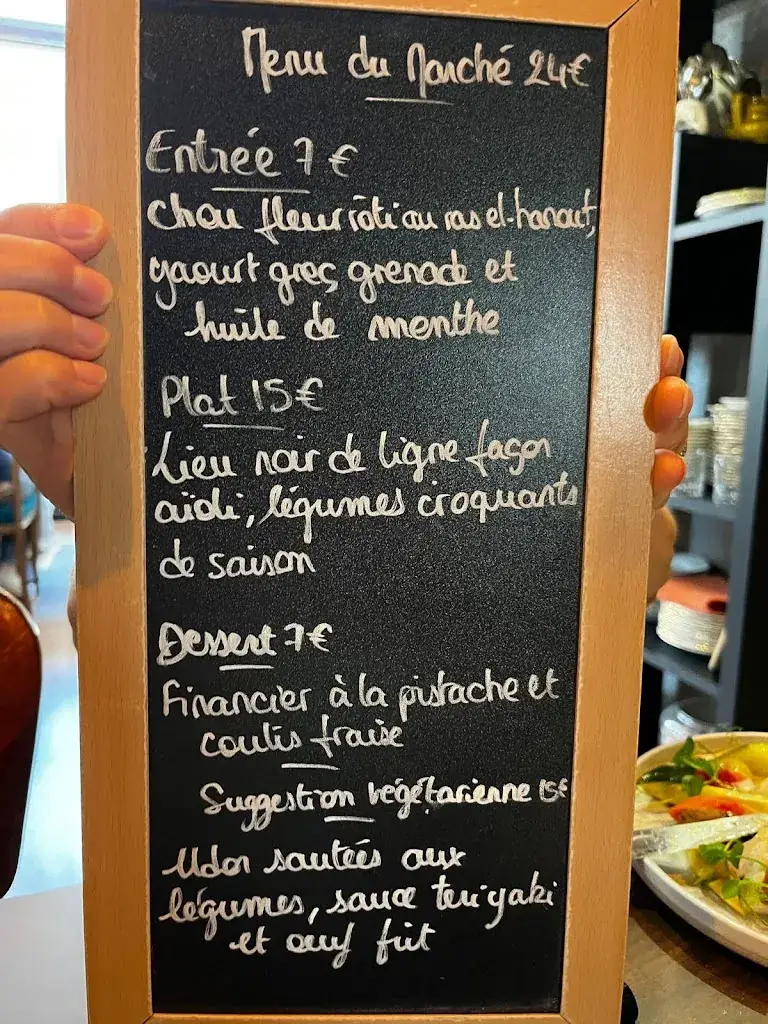 Menu du Marché 24€
Entrée 7€
Chou fleur rôti au ras el-hanout,
yaourt grec grenade et
huile de menthe
Plat 15€
Lieu noir de ligne façon
aïoli, légumes croquants
de saison
Dessert 7€
Financier à la pistache et
coulis fraise
Suggestion végétarienne 15€
Udon sautées aux
légumes, sauce teriyaki
et œuf frit